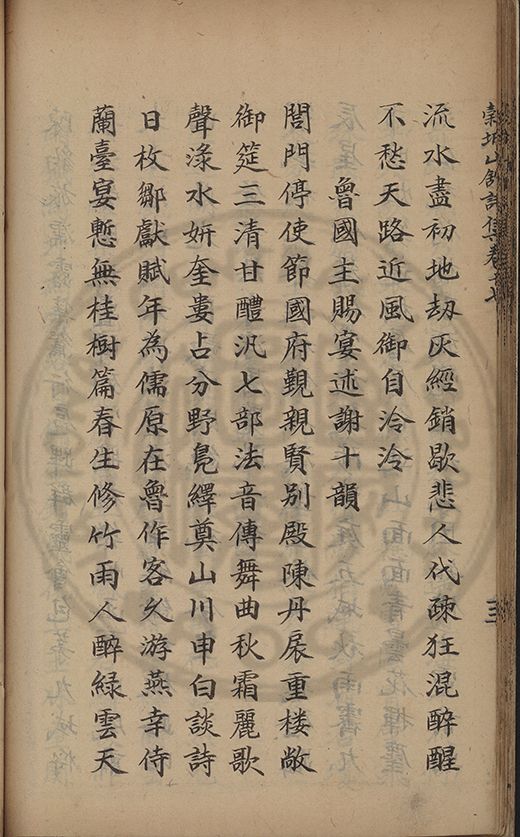 穀城山館詩集卷七
三
流水盡初地劫灰經銷歇悲人代疎狂混醉醒
不愁天路近風御自泠泠
魯國主賜宴述謝十韻
閭門停使節國府覲親賢別殿陳丹扆重楼敞
御筵三清甘醴汎七部法音傳舞曲秋霜麗歌
聲淥水妍奎婁占分野鳬繹奠山川申白談詩
日枚鄒獻賦年為儒原在魯作客久游燕幸侍
蘭臺宴慙無桂樹篇春生修竹雨人醉緑雲天